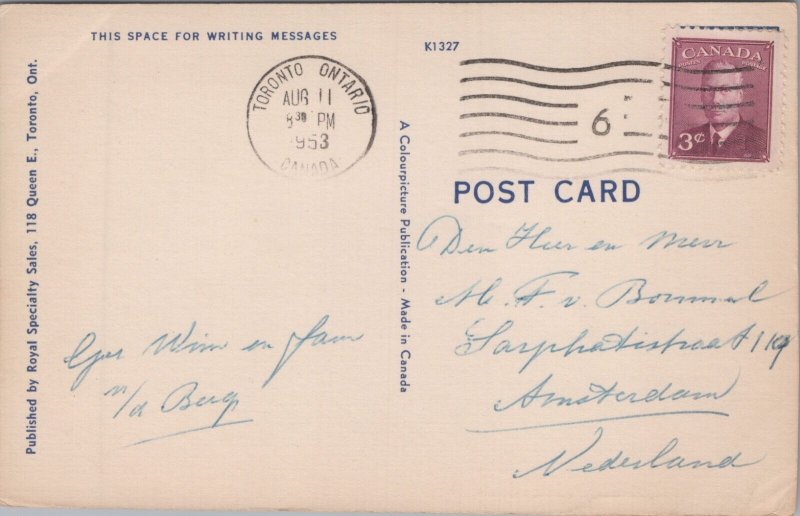 THIS SPACE FOR WRITING MESSAGES
K1327
TORONTO ONTARIO
AUG 11
8 30 PM
1953
CANADA
6
CANADA
POSTES POSTAGE
3¢
POST CARD
Published by Royal Specialty Sales, 118 Queen E., Toronto, Ont.
A Colourpicture Publication - Made in Canada
Den Heer en Mevr
F. v. Bommel
Sarphatistraat
Amsterdam
Nederland
Wim en Fam
v/d Berg